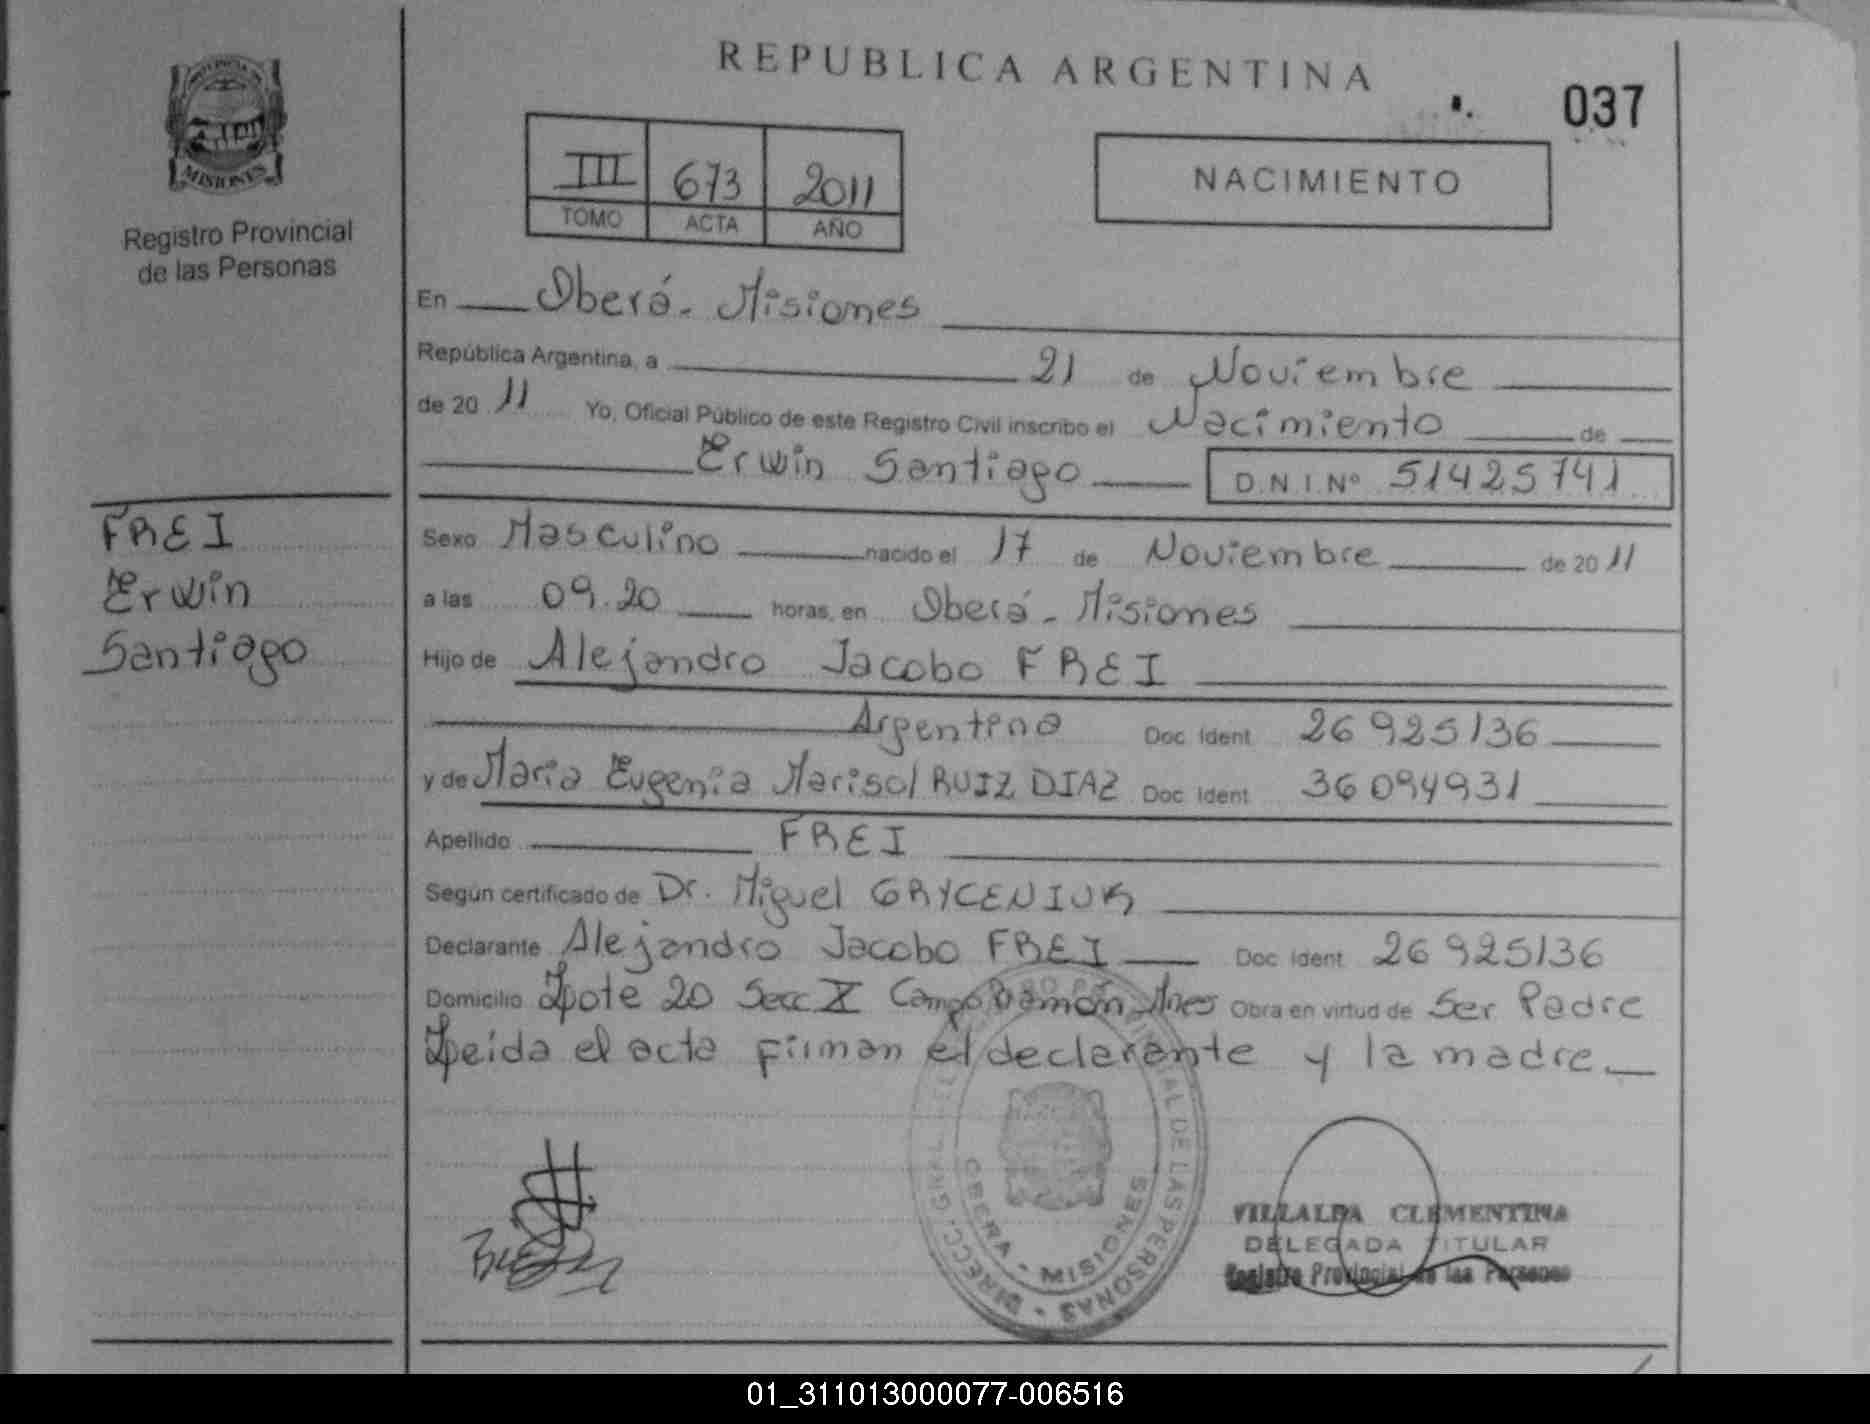 REPUBLICA ARGENTINA
037
PROVINCIA DE
MISIONES
Registro Provincial
de las Personas
III 673 2011
TOMO ACTA AÑO
NACIMIENTO
En Oberá - Misiones
República Argentina, a 21 de Noviembre
de 20 11 Yo, Oficial Público de este Registro Civil inscribo el Nacimiento de
Erwin Santiago D.N.I. Nº 51425741
FREI
Erwin
Santiago
Sexo Masculino nacido el 17 de Noviembre de 20 11
a las 09.20 horas, en Oberá - Misiones
Hijo de Alejandro Jacobo FREI
Argentino Doc Ident 26925136
y de Maria Eugenia Marisol RUIZ DIAZ Doc Ident 36094931
Apellido FREI
Según certificado de Dr. Miguel GRYCENIUK
Declarante Alejandro Jacobo FREI Doc Ident 26925136
Domicilio Lote 20 Secc X Campo Ramón Mnes Obra en virtud de Ser Padre
Leída el acta firman el declarante y la madre
DIRECC. GRAL. DE LAS PERSONAS
OBERA - MISIONES
VILLALBA CLEMENTINA
DELEGADA TITULAR
Registro Provincial de las Personas
01_311013000077-006516